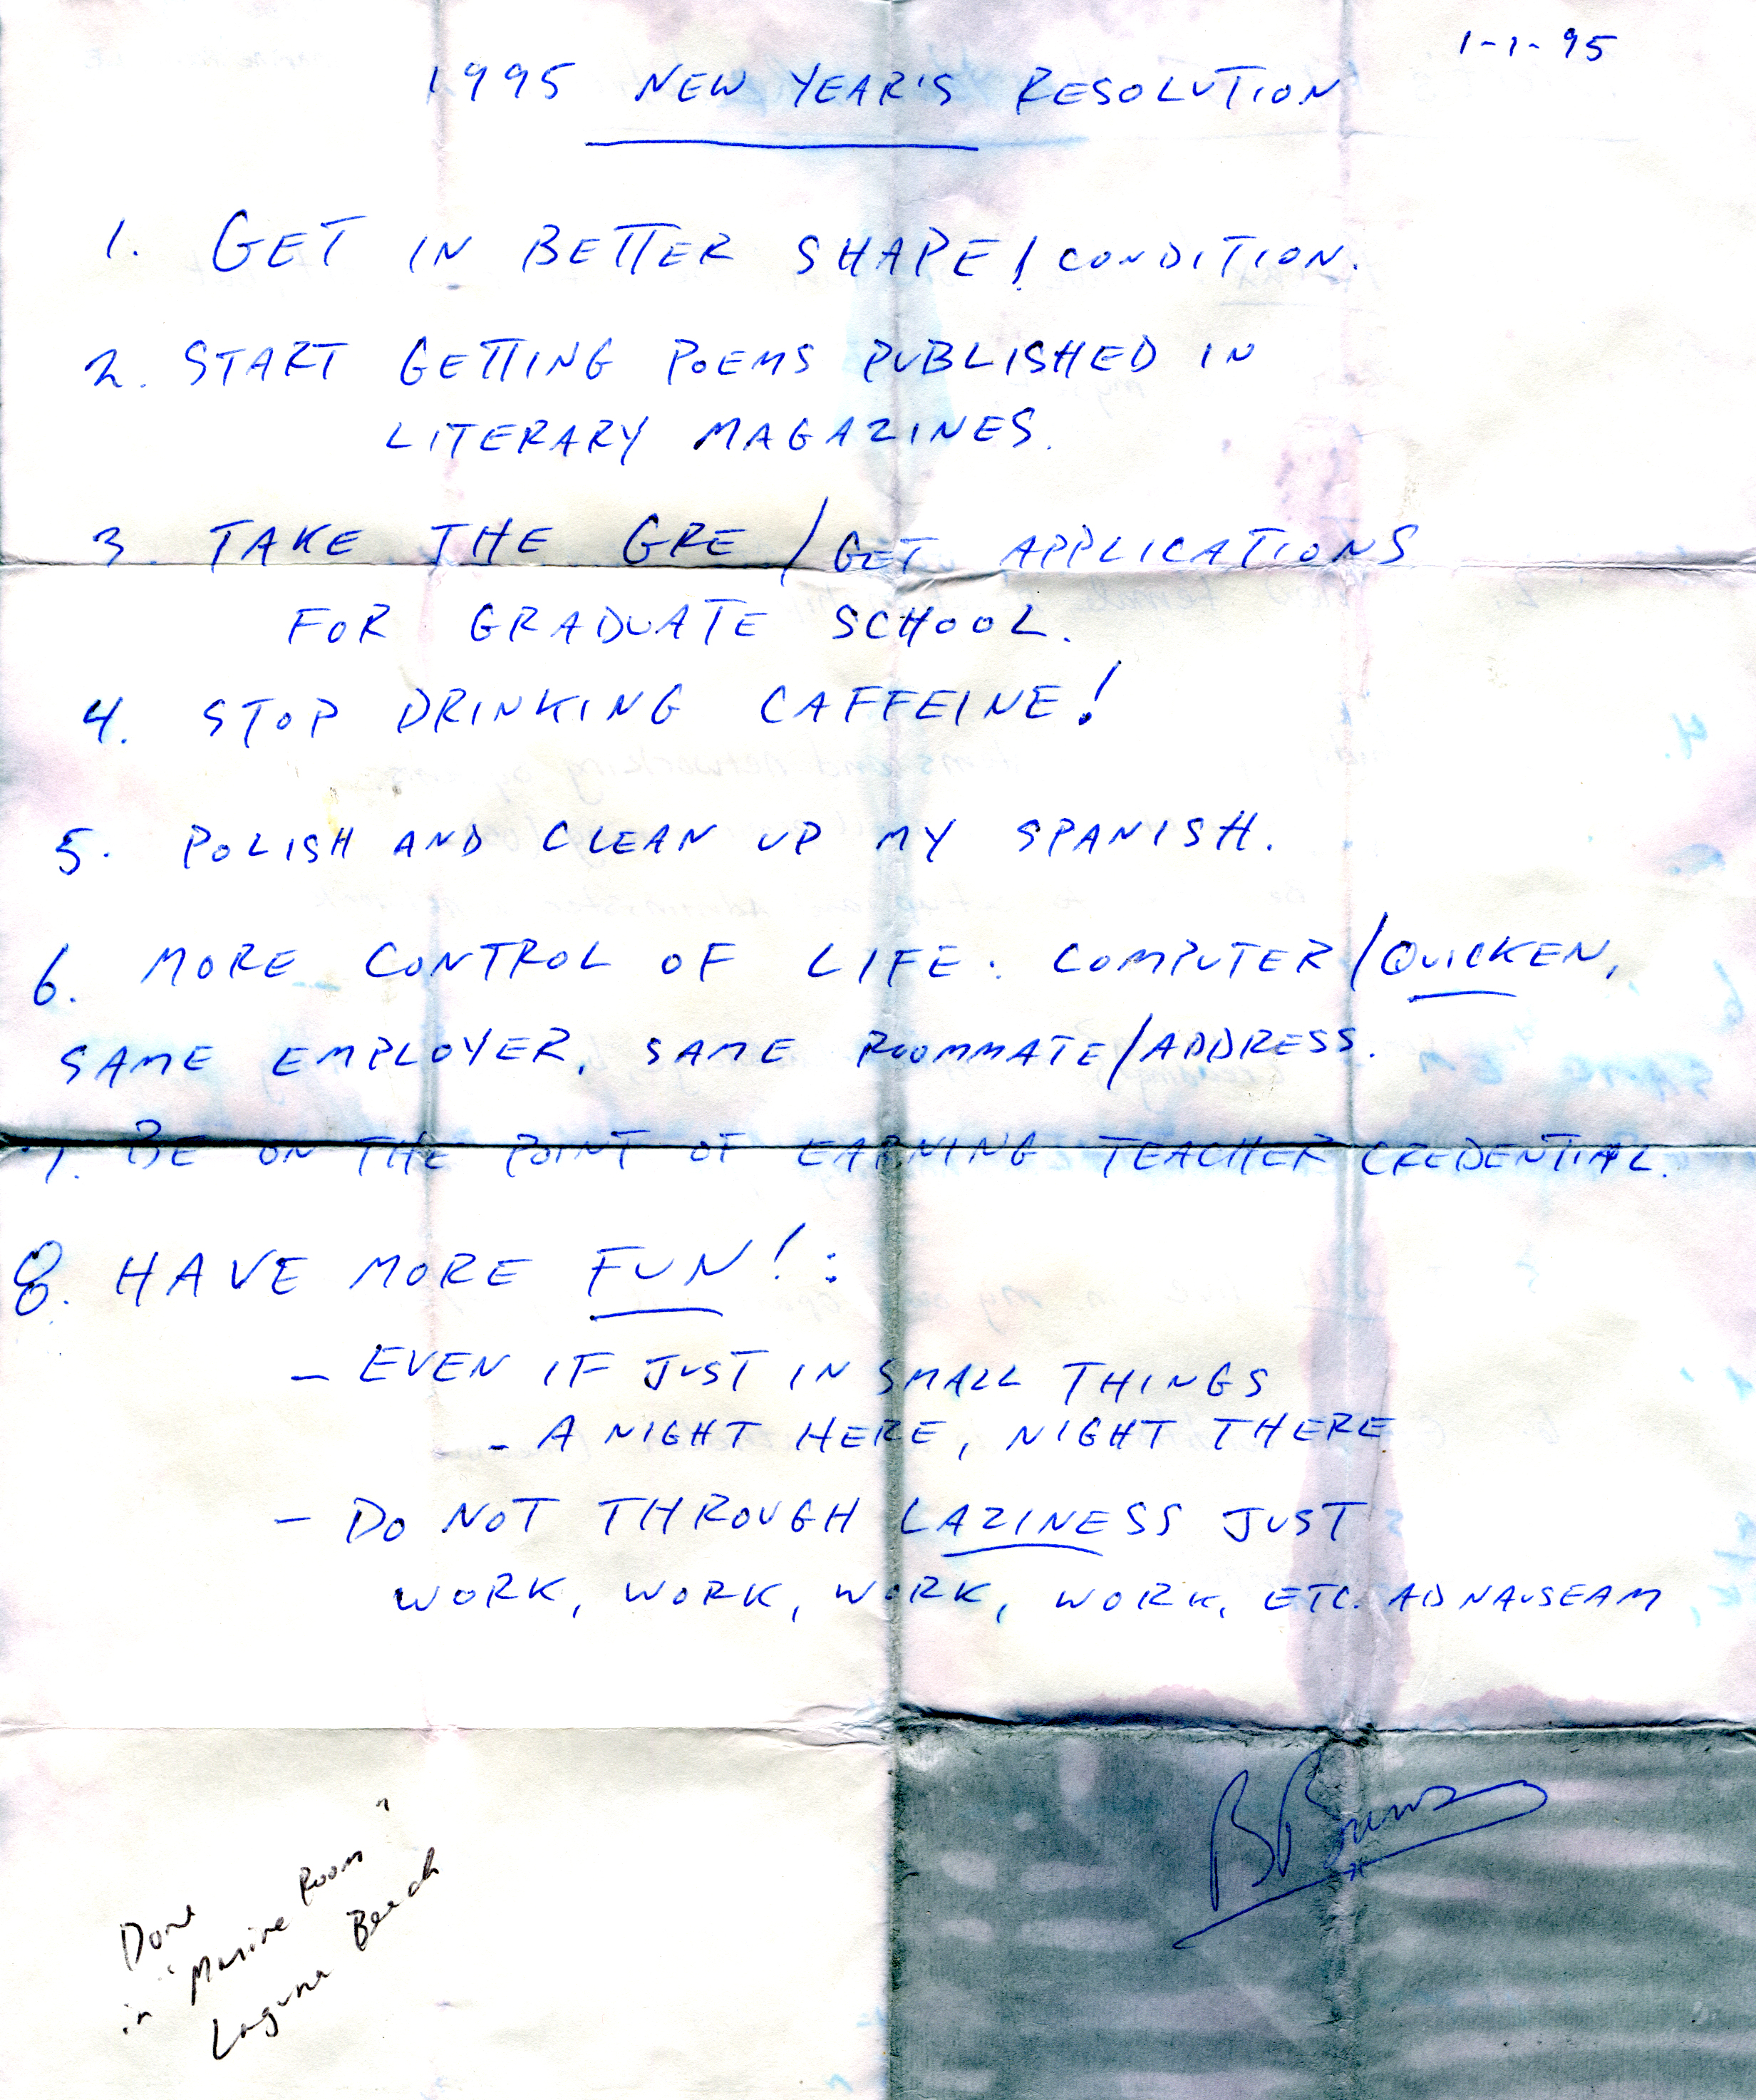 1-1-95
1995 NEW YEAR'S RESOLUTION
1. GET IN BETTER SHAPE/CONDITION.
2. START GETTING POEMS PUBLISHED IN
LITERARY MAGAZINES.
3. TAKE THE GRE/GET APPLICATIONS
FOR GRADUATE SCHOOL.
4. STOP DRINKING CAFFEINE!
5. POLISH AND CLEAN UP MY SPANISH.
6. MORE CONTROL OF LIFE: COMPUTER/QUICKEN,
SAME EMPLOYER, SAME ROOMMATE/ADDRESS.
7. BE ON THE POINT OF EARNING TEACHER CREDENTIAL.
8. HAVE MORE FUN!:
- EVEN IF JUST IN SMALL THINGS
- A NIGHT HERE, NIGHT THERE
- DO NOT THROUGH LAZINESS JUST
WORK, WORK, WORK, WORK, ETC. AD NAUSEAM
Done
in "Marine Room"
Laguna Beach